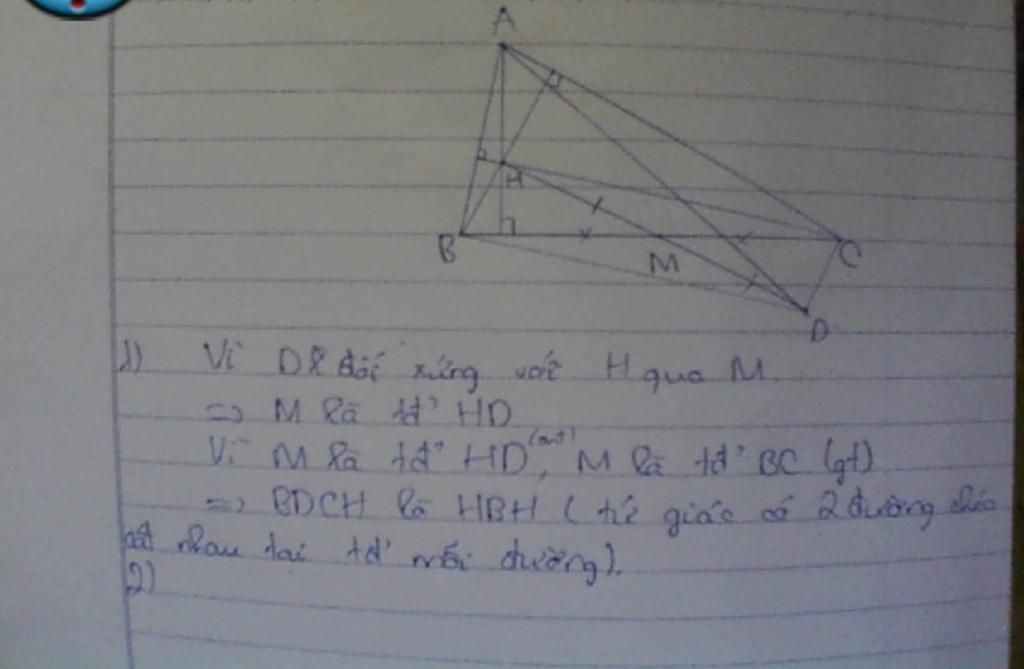 A
H
B
M
C
D
1) Vì D là đối xứng với H qua M.
=> M là tđ' HD
Vì M là tđ' HD (cmt), M là tđ' BC (gt)
=> BDCH là HBH ( tứ giác có 2 đường chéo
cắt nhau tại tđ' mỗi đường).
2)